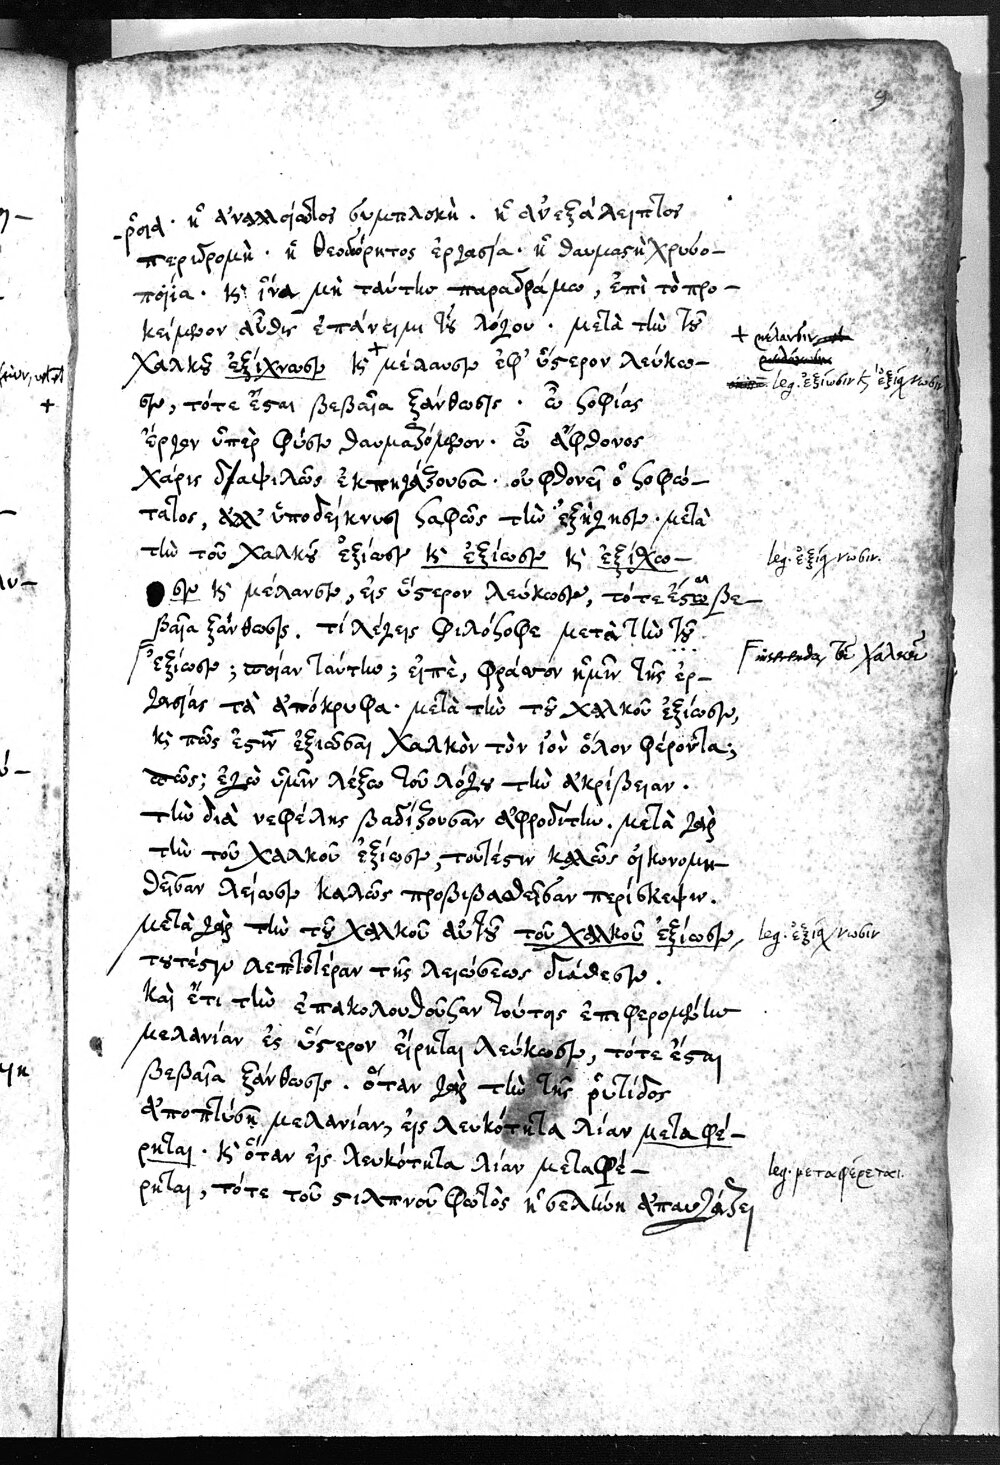 9
-ροια. ἡ ἀναλλοίωτος συμπλοκὴ. ἡ ἀνεξάλειπτος
περιδρομὴ. ἡ θεοδώρητος ἐργασία. ἡ θαυμαστὴ χρυσο-
ποιΐα. καὶ ἵνα μὴ ταύτην παραδράμω, ἐπὶ τὸ προ-
κείμενον αὖθις ἐπάνειμι τοῦ λόγου. μετὰ τὴν τοῦ
χαλκοῦ ἐξίχνωσιν καὶ + μέλανσιν ἐφ' ὕστερον λεύκω-
σιν, τότε ἔσται βεβαία ξάνθωσις. ὦ σοφίας
ἔργον ὑπὲρ φύσιν θαυμαζόμενον. ὦ ἄφθονος
χάρις δαψιλῶς ἐκπηγάζουσα. οὐ φθονεῖ ὁ σοφώ-
τατος, ἀλλ' ὑποδείκνυσι σαφῶς τὴν ἐξήγησιν. μετὰ
τὴν τοῦ χαλκοῦ ἐξίωσιν καὶ ἐξίωσιν καὶ ἐξίχω-
σιν καὶ μέλανσιν, εἰς ὕστερον λεύκωσιν, τότε ἔσται βε-
βαία ξάνθωσις. τί λέγεις φιλόσοφε μετὰ τὴν τοῦ
ἐξίωσιν; ποίαν ταύτην; εἰπὲ, φράσον ἡμῖν τῆς ἐρ-
γασίας τὰ ἀπόκρυφα. μετὰ τὴν τοῦ χαλκοῦ ἐξίωσιν,
καὶ πῶς ἐστὶν ἐξιῶσαι χαλκὸν τὸν ἰὸν ὅλον φέροντα;
πῶς; ἐγὼ ὑμῖν λέξω τοῦ λόγου τὴν ἀκρίβειαν.
τὴν διὰ νεφέλης βαδίζουσαν ἀφροδίτην. μετὰ γὰρ
τὴν τοῦ χαλκοῦ ἐξίωσιν, τουτέστιν καλῶς οἰκονομη-
θεῖσαν λείωσιν καλῶς προβιβασθεῖσαν περίσκεψιν.
μετὰ γὰρ τὴν τοῦ χαλκοῦ αὐτοῦ τοῦ χαλκοῦ ἐξίωσιν,
τουτέστιν λεπτοτέραν τῆς λειώσεως διάθεσιν.
καὶ ἔτι τὴν ἐπακολουθοῦσαν τούτοις ἐπιφερομένην
μελανίαν ἐς ὕστερον εἴρηται λεύκωσιν, τότε ἔσται
βεβαία ξάνθωσις. ὅταν γὰρ τὴν τῆς ῥυτίδος
ἀποπτύσῃ μελανίαν, εἰς λευκότητα λίαν μεταφέ-
ρηται. καὶ ὅταν εἰς λευκότητα λίαν μεταφέ-
ρηται, τότε τοῦ στιλπνοῦ φωτὸς ἡ σελήνη ἀπαυγάζει
+ μέλανσιν
leg. ἐξίωσιν καὶ ἐξίχνωσιν
leg. ἐξίχνωσιν.
τοῦ χαλκοῦ
leg. ἐξίχνωσιν
leg. μεταφέρεται.